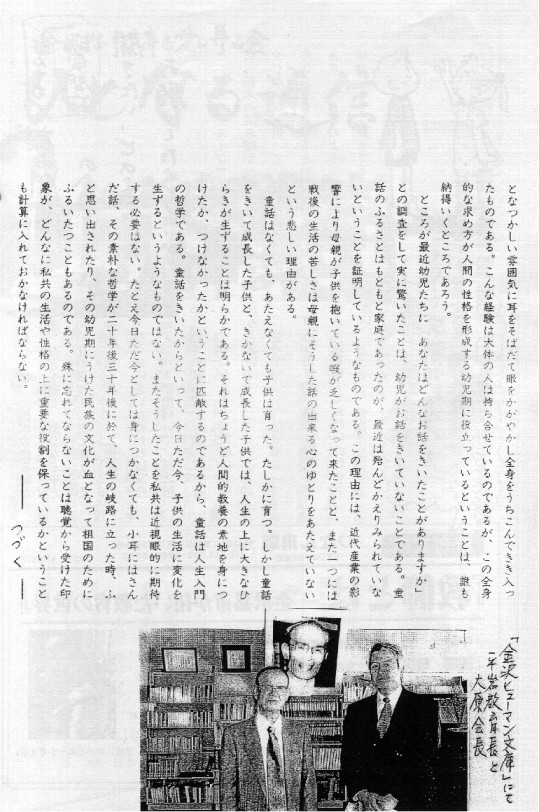 となつかしい雰囲気に耳をそばだて眼をかがやかし全身をうちこんできき入っ
たものである。こんな経験は大体の人は持ち合せているのであるが、この全身
的な求め方が人間の性格を形成する幼児期に役立っているということは、誰も
納得いくところであろう。
ところが最近幼児たちに　あなたはどんなお話をきいたことがありますか」
との調査をして実に驚いたことは、幼児がお話をきいていないことである。童
話のふるさとはもともと家庭であったのが、最近は殆んどかえりみられていな
いということを証明しているようなものである。この理由には、近代産業の影
響により母親が子供を抱いている暇が乏しくなって来たことと、また一つには
戦後の生活の苦しさは母親にそうした話の出来る心のゆとりをあたえていない
という悲しい理由がある。
童話はなくても、あたえなくても子供は育った。たしかに育つ。しかし童話
をきいて成長した子供と、きかないで成長した子供では、人生の上に大きなひ
らきが生ずることは明らかである。それはちょうど人間的教養の素地を身につ
けたか、つけなかったかということに匹敵するのであるから、童話は人生入門
の哲学である。童話をきいたからといって、今日ただ今、子供の生活に変化を
生ずるというようなものではない。またそうしたことを私共は近視眼的に期待
する必要はない。たとえ今日ただ今としては身につかなくても、小耳にはさん
だ話、その素朴な哲学が二十年後三十年後に於て、人生の岐路に立った時、ふ
と思い出されたり、その幼児期にうけた民族の文化が血となって祖国のために
ふるいたつこともあるのである。殊に忘れてならないことは聴覚から受けた印
象が、どんなに私共の生活や性格の上に重要な役割を保っているかということ
も計算に入れておかなければならない。
―― つづく ――
「金沢ヒューマン文庫」にて
平岩教育長と
大原会長